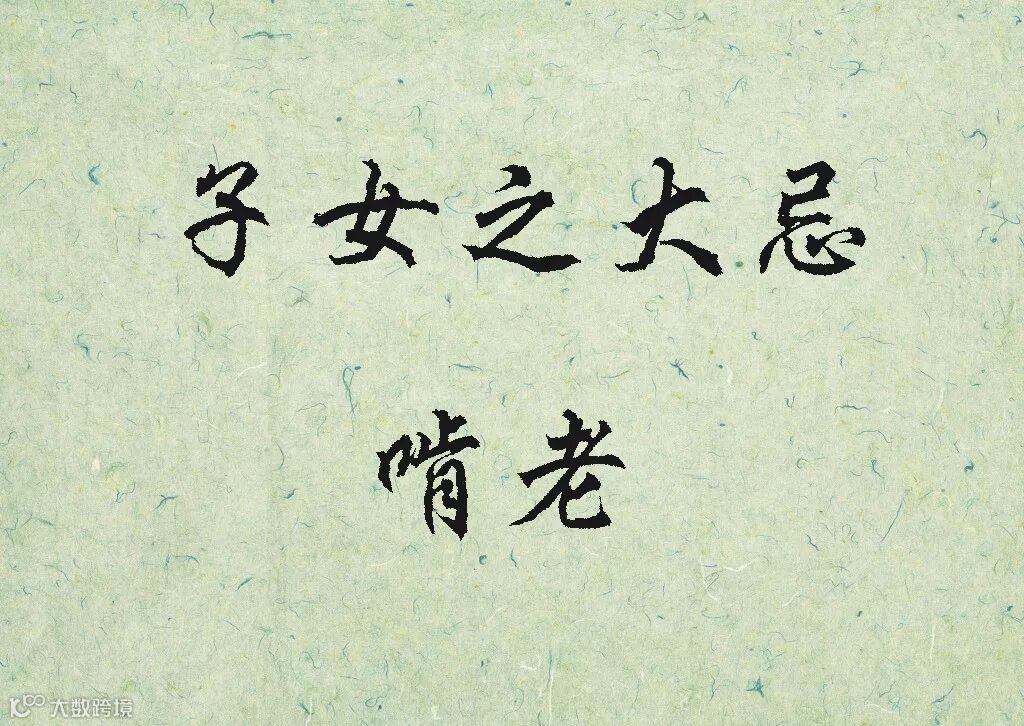 子女之大忌
啃老
大数跨境